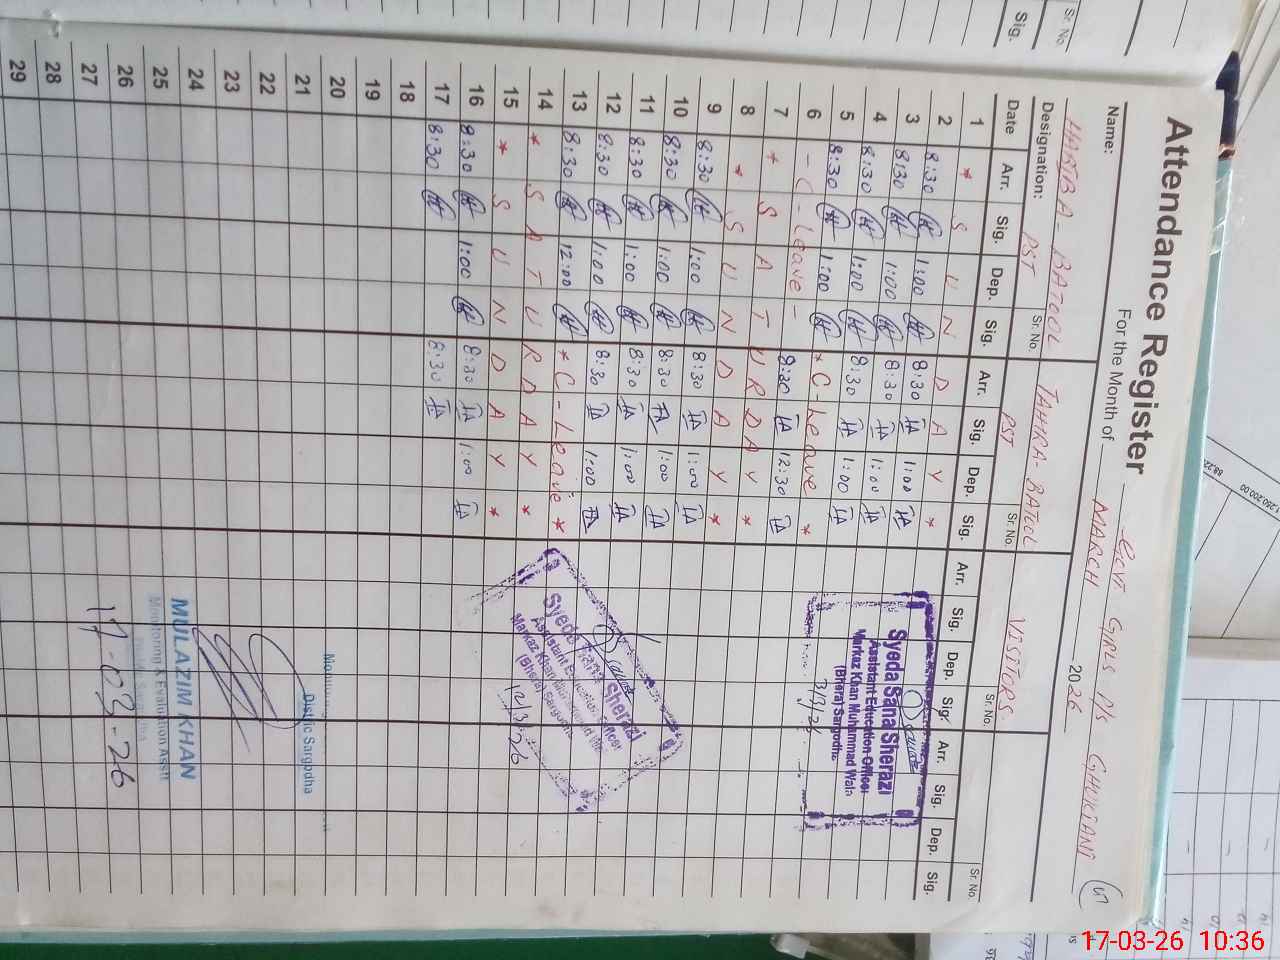 Attendance Register
Govt GIRLS P/S GHUKIANI
For the Month of MARCH 2026
Name: HABIBA-BATOOL TAHIRA-BATOOL VISITORS
Designation: PST PST
Sr. No. Sr. No. Sr. No. Sr. No.
Date Arr. Sig. Dep. Sig. Arr. Sig. Dep. Sig. Arr. Sig. Dep. Sig. Arr. Sig. Dep. Sig.
1 * S U N D A Y *
2 8:30 1:00 8:30 1:00
3 8:30 1:00 8:30 1:00
4 8:30 1:00 8:30 1:00
5 8:30 1:00 8:30 1:00
6 - C - Leave - * C - Leave *
7 * S A T U R D A Y *
8:30 12:30
8 * S U N D A Y *
9 8:30 1:00 8:30 1:00
10 8:30 1:00 8:30 1:00
11 8:30 1:00 8:30 1:00
12 8:30 1:00 8:30 1:00
13 8:30 12:00 * C - Leave *
14 * S A T U R D A Y *
15 * S U N D A Y *
16 8:30 1:00 8:30 1:00
17 8:30 8:30
18
19
20
21
22
23
24
25
26
27
28
29
Syeda Sana Sherazi
Assistant Education Officer
Markaz Khan Muhammad Wala
(Bhera) Sargodha
3/3/26
Syeda Sana Sherazi
Assistant Education Officer
Markaz Khan Muhammad Wala
(Bhera) Sargodha
12/3/26
Distric Sargodha
MULAZIM KHAN
Monitoring & Evaluation Asstt
17-03-26
Sr. No.
Sig.
17-03-26 10:36